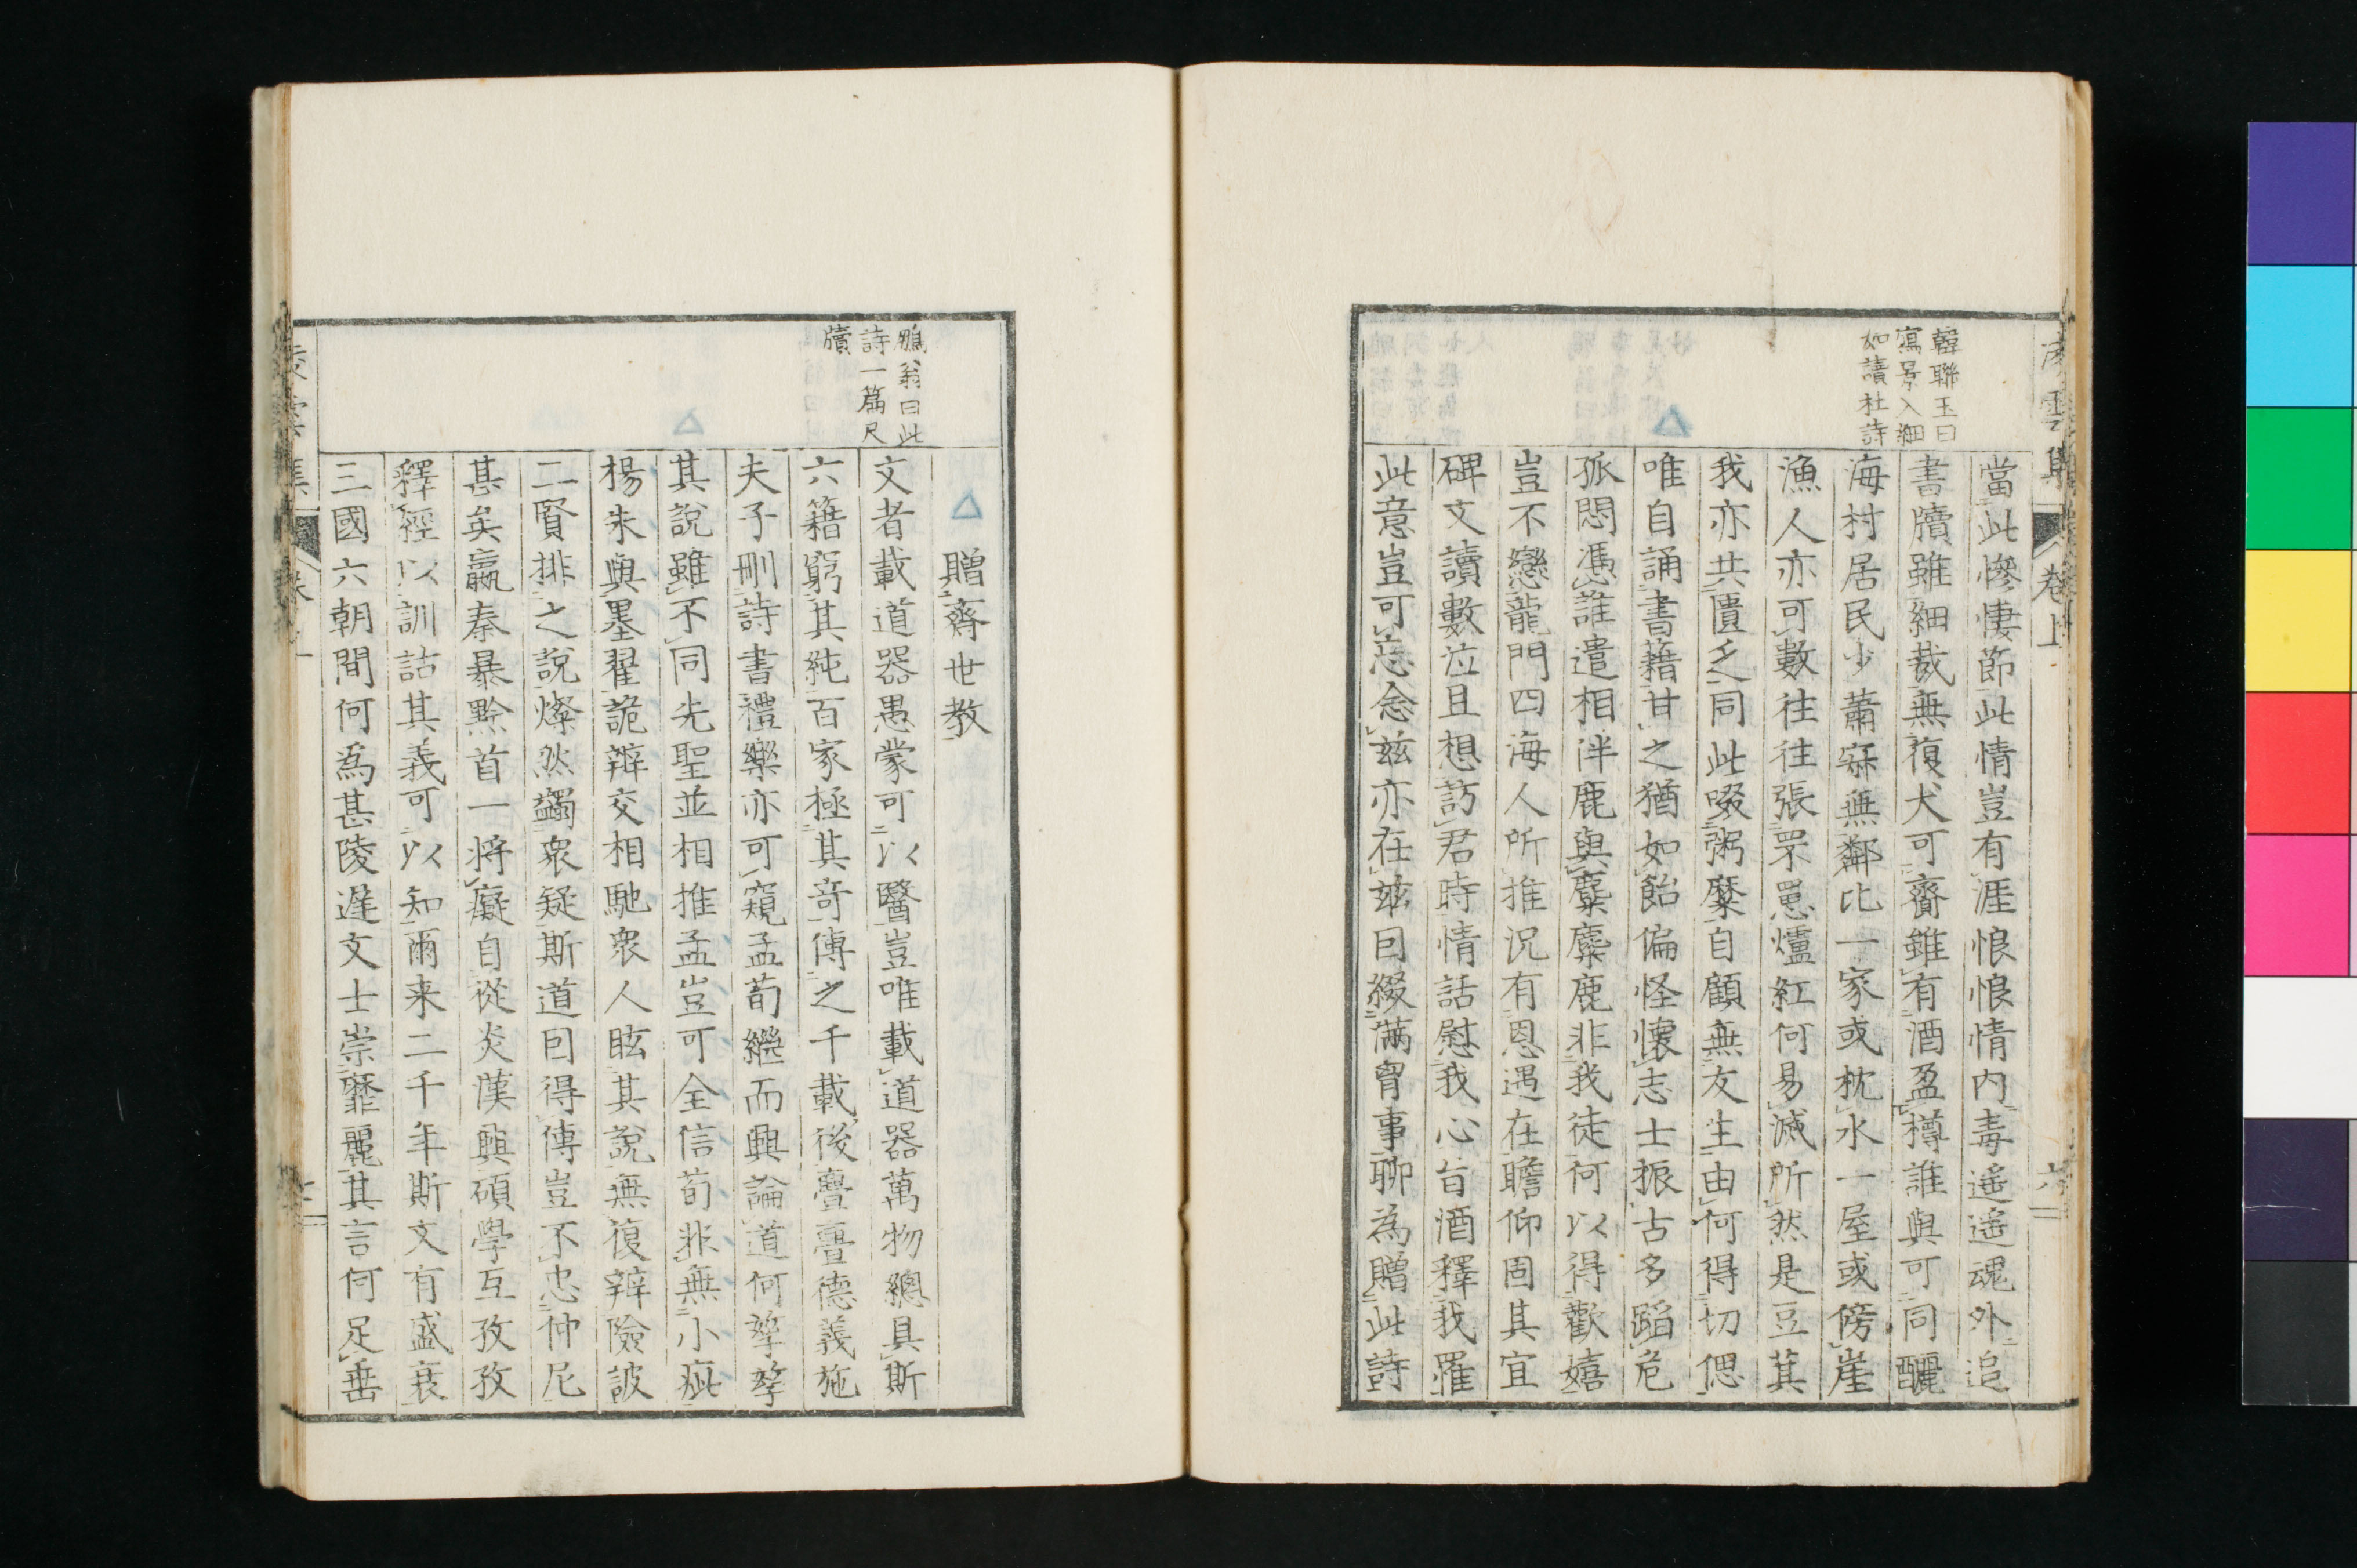 韓聯玉曰
寫景入細
如讀杜詩
當此慘悽節此情豈有涯悢悢情内毒遥遥魂外追
書牘雖細裁無復犬可齎雖有酒盈樽誰與可同釃
海村居民少蕭寂無鄰比一家或枕水一屋或傍崖
漁人亦可數往往張罘罳爐紅何易滅所然是豆萁
我亦共匱乏同此啜粥糜自顧無友生由何得切偲
唯自誦書籍甘之猶如飴偏怪懷志士振古多蹈危
孤悶憑誰遣相伴鹿與麋麋鹿非我徒何以得歡嬉
豈不戀龍門四海人所推況有恩遇在瞻仰固其宜
碑文讀數泣且想訪君時情話慰我心旨酒釋我罹
此意豈可忘念兹亦在兹囙綴滿胷事聊為贈此詩
卷上
六
鵬翁曰此
詩一篇尺
牘
贈齋世教
文者載道器愚蒙可以醫豈唯載道器萬物總具斯
六籍窮其純百家極其奇傳之千載後亹亹德義施
夫子刪詩書禮樂亦可窺孟荀繼而興論道何孳孳
其說雖不同先聖並相推孟豈可全信荀非無小疵
楊朱與墨翟詭辯交相馳衆人眩其說無復辨險詖
二賢排之說燦然蠲衆疑斯道囙得傳豈不忠仲尼
甚矣嬴秦暴黔首一將癡自從炎漢興碩學互孜孜
釋經以訓詁其義可以知爾来二千年斯文有盛衰
三國六朝間何爲甚陵遲文士崇靡麗其言何足垂